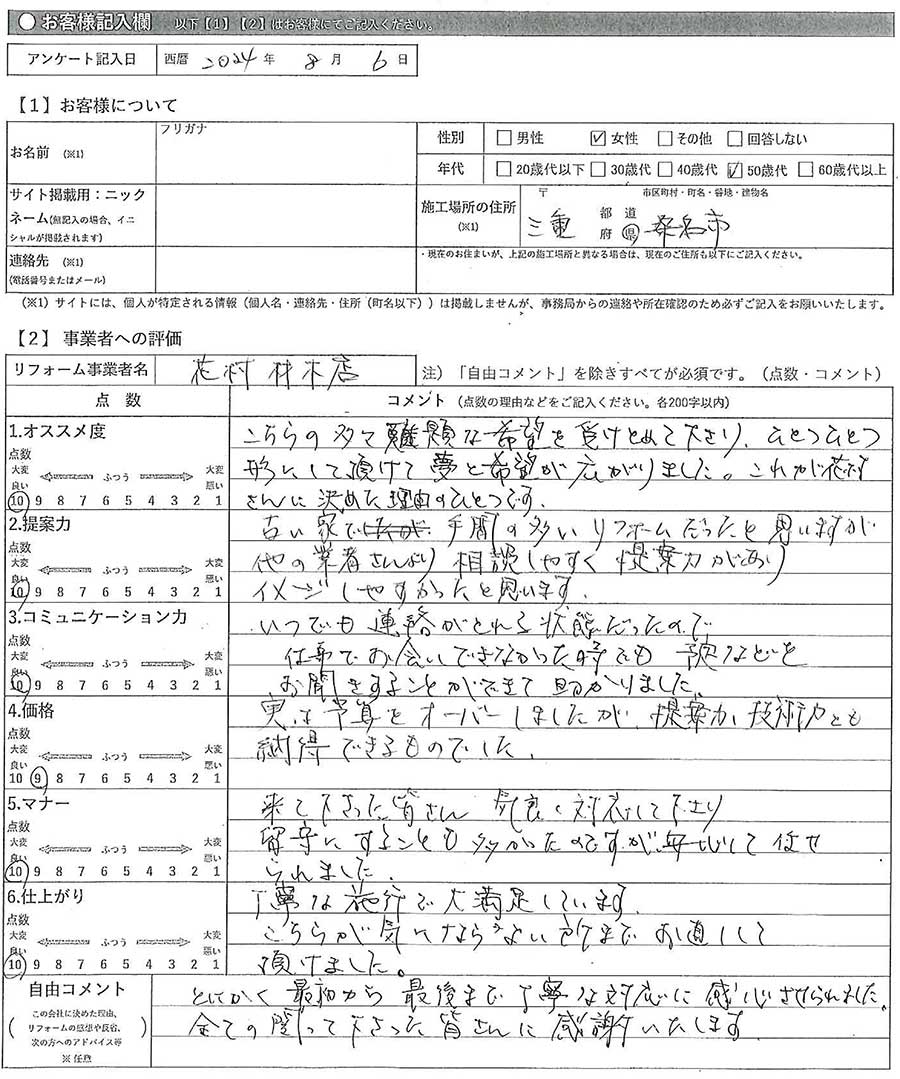 ● お客様記入欄 以下【1】【2】はお客様にてご記入ください。
アンケート記入日 西暦 2024 年 8 月 6 日
【1】お客様について
お名前 (※1) フリガナ
性別 □男性 ☑女性 □その他 □回答しない
年代 □20歳代以下 □30歳代 □40歳代 ☑50歳代 □60歳代以上
サイト掲載用：ニックネーム(無記入の場合、イニシャルが掲載されます)
施工場所の住所 (※1) 〒 市区町村・町名・番地・建物名
三重 都 道 府 県 桑名市
・現在のお住まいが、上記の施工場所と異なる場合は、現在のご住所も以下にご記入ください。
連絡先 (※1)
(電話番号またはメール)
(※1) サイトには、個人が特定される情報（個人名・連絡先・住所（町名以下））は掲載しませんが、事務局からの連絡や所在確認のため必ずご記入をお願いいたします。
【2】事業者への評価
リフォーム事業者名 花村材木店 注）「自由コメント」を除きすべてが必須です。（点数・コメント）
点 数 コメント（点数の理由などをご記入ください。各200字以内）
1.オススメ度
点数
大変良い ふつう 大変悪い
10 9 8 7 6 5 4 3 2 1
こちらの多々難題な希望を受けとめて下さり、ひとつひとつ
形にして頂けて夢と希望が広がりました。これが花村
さんに決めた理由のひとつです.
2.提案力
点数
大変良い ふつう 大変悪い
10 9 8 7 6 5 4 3 2 1
古い家で 手間の多いリフォームだったと思いますが
他の業者さんより相談しやすく提案力があり
イメージしやすかったと思います.
3.コミュニケーション力
点数
大変良い ふつう 大変悪い
10 9 8 7 6 5 4 3 2 1
いつでも連絡がとれる状態だったので
仕事でお会いできなかった時でも 予定などを
お聞きすることができて助かりました.
4.価格
点数
大変良い ふつう 大変悪い
10 9 8 7 6 5 4 3 2 1
実は予算をオーバーしましたが、提案力、技術力とも
納得できるものでした.
5.マナー
点数
大変良い ふつう 大変悪い
10 9 8 7 6 5 4 3 2 1
来て下さった皆さん 気良く対応して下さり
留守にすることも多かったのですが安心して任せ
られました.
6.仕上がり
点数
大変良い ふつう 大変悪い
10 9 8 7 6 5 4 3 2 1
丁寧な施行で大満足しています.
こちらが気にならない所までお直しして
頂けました。
自由コメント
この会社に決めた理由、リフォームの感想や反省、次の方へのアドバイス等
※任意
とにかく最初から最後まで丁寧な対応に感心させられました.
全ての関って下さった皆さんに感謝いたします